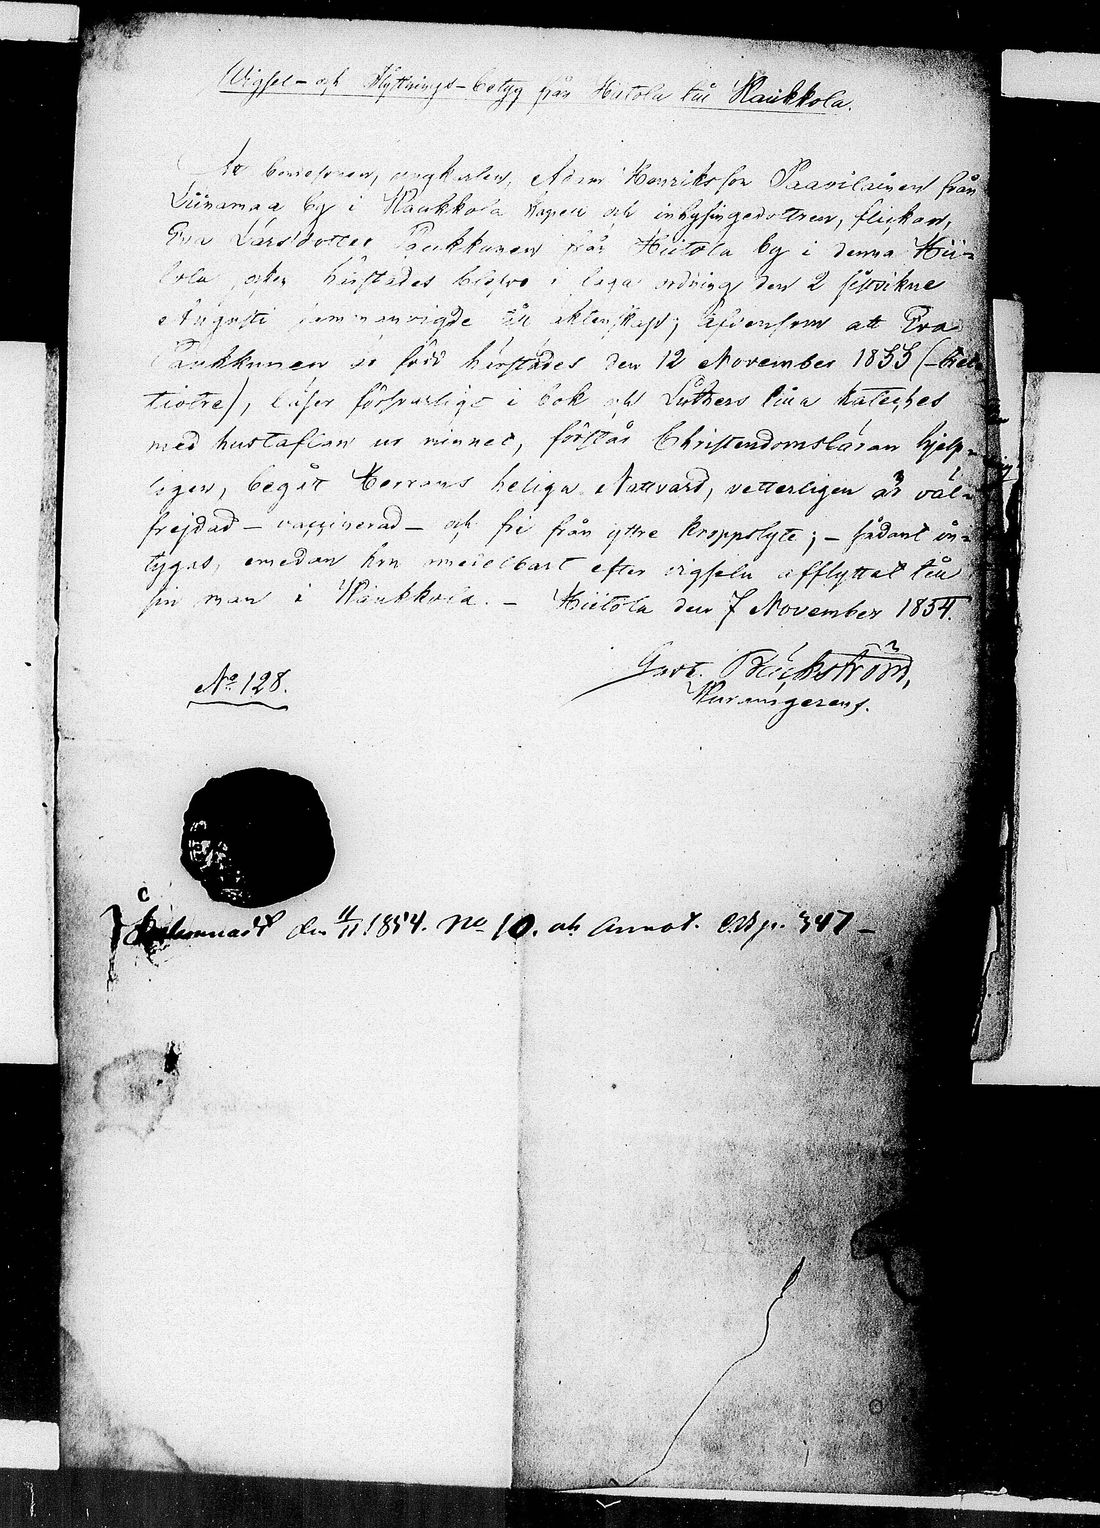 Vigsel- och Flyttnings-betyg från Hiitola till Kaukkola.
bonesonen, ungkarlen, Adam Henriksson Paavilainen från
Liinamaa by i Kaukkola kapell och inhysingedottren, flickan,
Eva Larsdotter Paukkunen från Hiitola by i denna Hii-
tola härstädes blefvo i laga ordning den 2 sistvikne
Augusti sammanvigde till äktenskap; äfvensom att Eva
Paukkunen är född härstädes den 12 November 1833 (
), läser försvarligt i bok och Luthers lilla kateches
med hustaflan ur minnet, förstår Christendomsläran hjelp-
ligen, begått Herrans heliga Nattvard, vetterligen är väl-
frejdad - vaccinerad - och fri från yttre kroppslyte; - sådant in-
tygas, emedan hon omedelbart efter vigseln afflyttat till
sin man i Kaukkola. - Hiitola den 7 November 1854.
Gust. Bäckström,
No 128.
den 11/11 1854. No 10. och Annot. p. 347 -